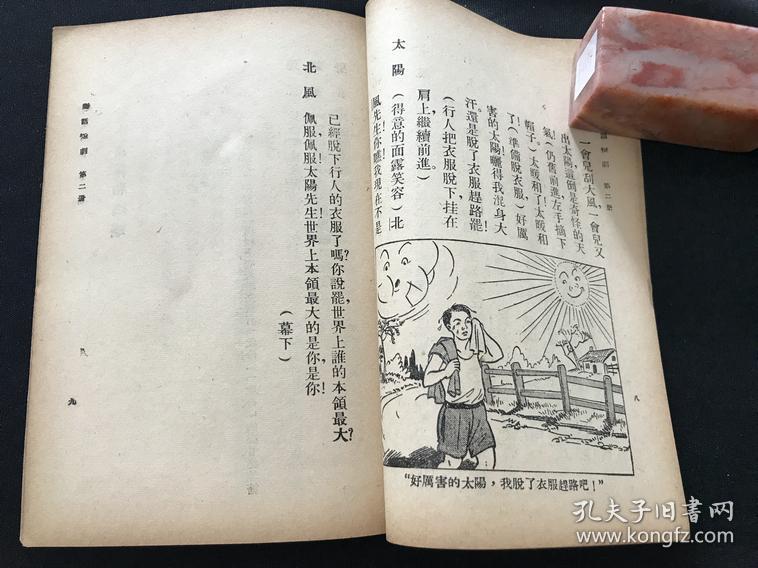 一會兒刮大風，一會兒又
出太陽，這倒是奇怪的天
氣！（仍舊前進，左手摘下
帽子）太暖和了！太暖和
了！（準備脫衣服）好厲
害的太陽！曬得我混身大
汗。還是脫了衣服趕路罷！
（行人把衣服脫下，挂在
肩上，繼續前進。）
太陽 （得意的面露笑容）北
風先生！你瞧！我現在不是
“好厲害的太陽，我脫了衣服趕路吧！”
八
已經脫下行人的衣服了嗎？你說罷，世界上誰的本領最大？
北風 佩服！佩服！太陽先生！世界上本領最大的是你，是你！
（幕下）
第二册
九
孔夫子旧書网
www.kongfz.com